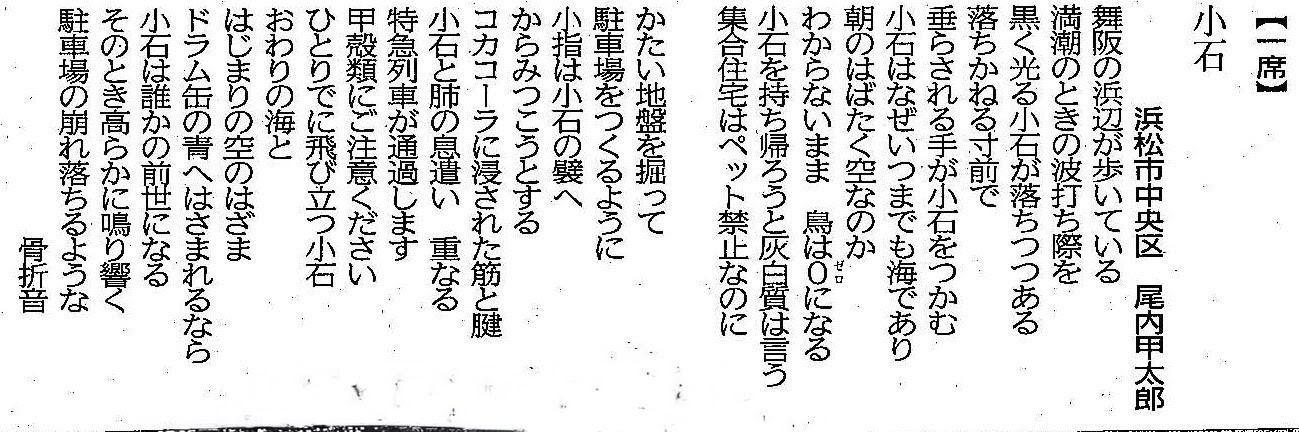 【一席】
小石
浜松市中央区　尾内甲太郎
舞阪の浜辺が歩いている
満潮のときの波打ち際を
黒く光る小石が落ちつつある
落ちかねる寸前で
垂らされる手が小石をつかむ
小石はなぜいつまでも海であり
朝のはばたく空なのか
わからないまま　鳥は０になる
ゼロ
小石を持ち帰ろうと灰白質は言う
集合住宅はペット禁止なのに
かたい地盤を掘って
駐車場をつくるように
小指は小石の襞へ
からみつこうとする
コカコーラに浸された筋と腱
小石と肺の息遣い　重なる
特急列車が通過します
甲殻類にご注意ください
ひとりでに飛び立つ小石
おわりの海と
はじまりの空のはざま
ドラム缶の青へはさまれるなら
小石は誰かの前世になる
そのとき高らかに鳴り響く
駐車場の崩れ落ちるような
骨折音